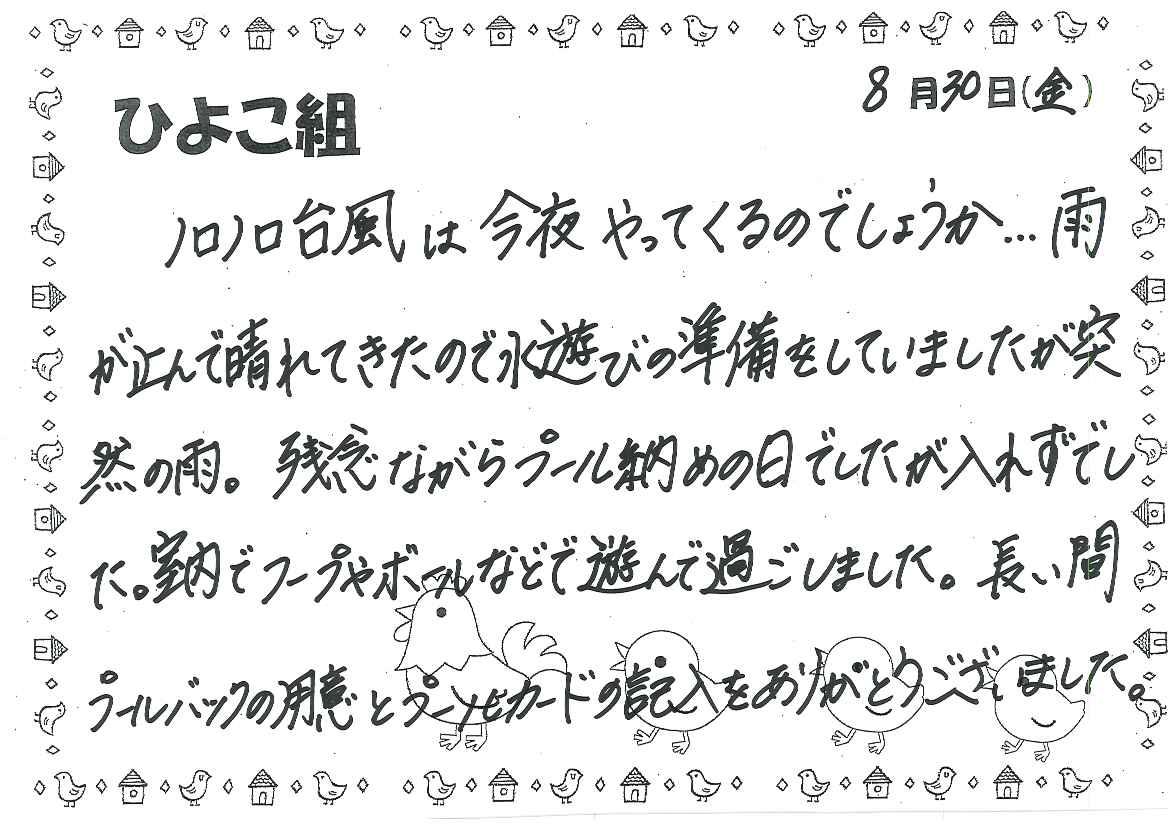 8月30日(金)
ひよこ組
ノロノロ台風は今夜やってくるのでしょうか…雨
が止んで晴れてきたので水遊びの準備をしていましたが突
然の雨。残念ながらプール納めの日でしたが入れずでし
た。室内でフープやボールなどで遊んで過ごしました。長い間
プールバックの用意とプールカードの記入をありがとうございました。